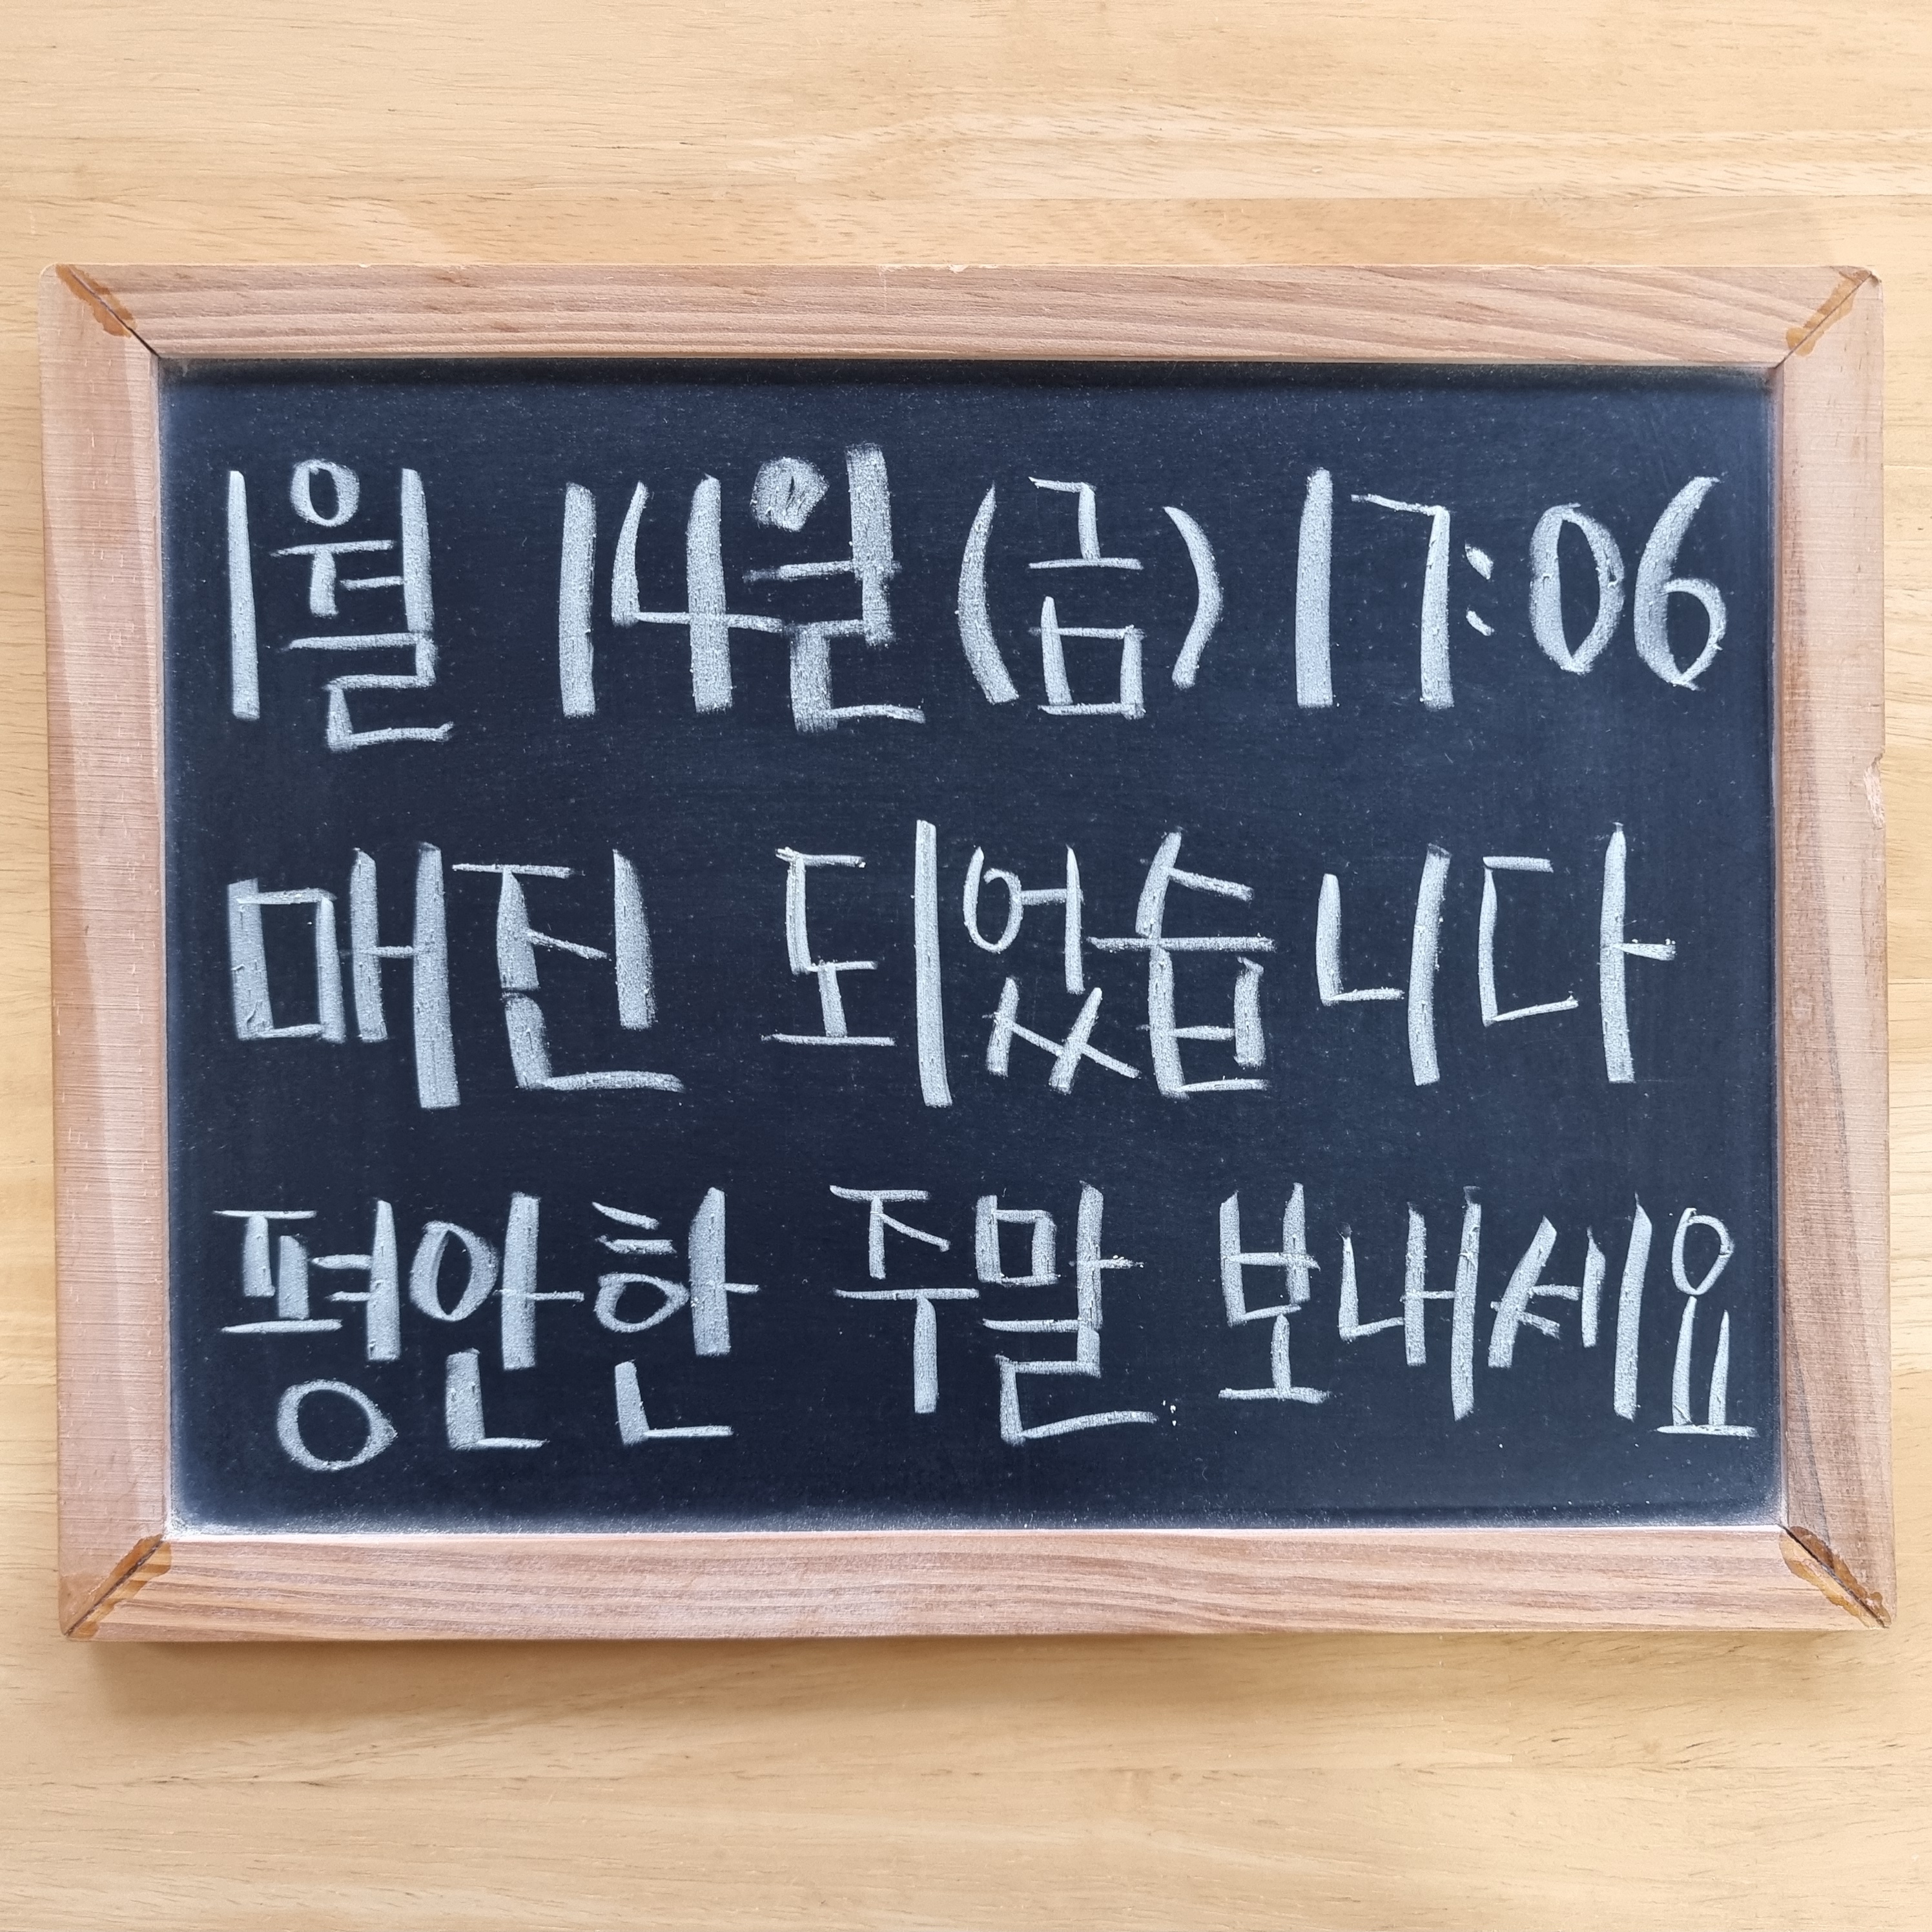 1월 14일 (금) 17:06
매진 되었습니다
평안한 주말 보내세요